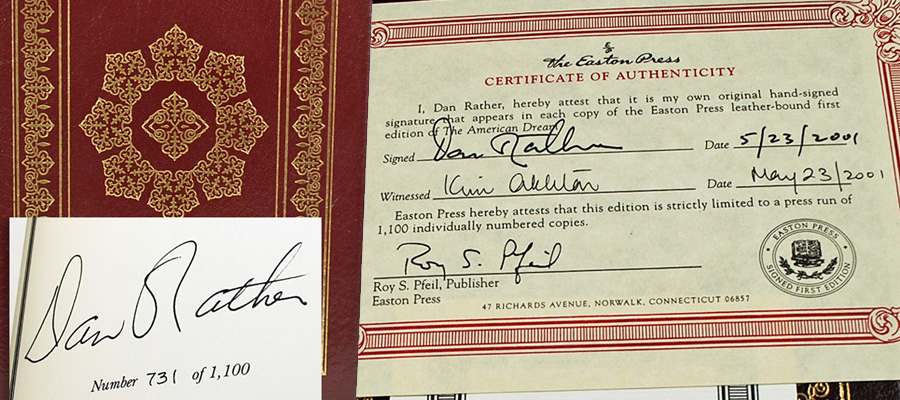 Dan Rather
Number 731 of 1,100
The Easton Press
CERTIFICATE OF AUTHENTICITY
I, Dan Rather, hereby attest that it is my own original hand-signed
signature that appears in each copy of the Easton Press leather-bound first
edition of The American Dream
Signed Dan Rather Date 5/23/2001
Witnessed Kim Date May 23/2001
Easton Press hereby attests that this edition is strictly limited to a press run of
1,100 individually numbered copies.
Roy S. Pfeil
Roy S. Pfeil, Publisher
Easton Press
47 RICHARDS AVENUE, NORWALK, CONNECTICUT 06857
EASTON PRESS
SIGNED FIRST EDITION